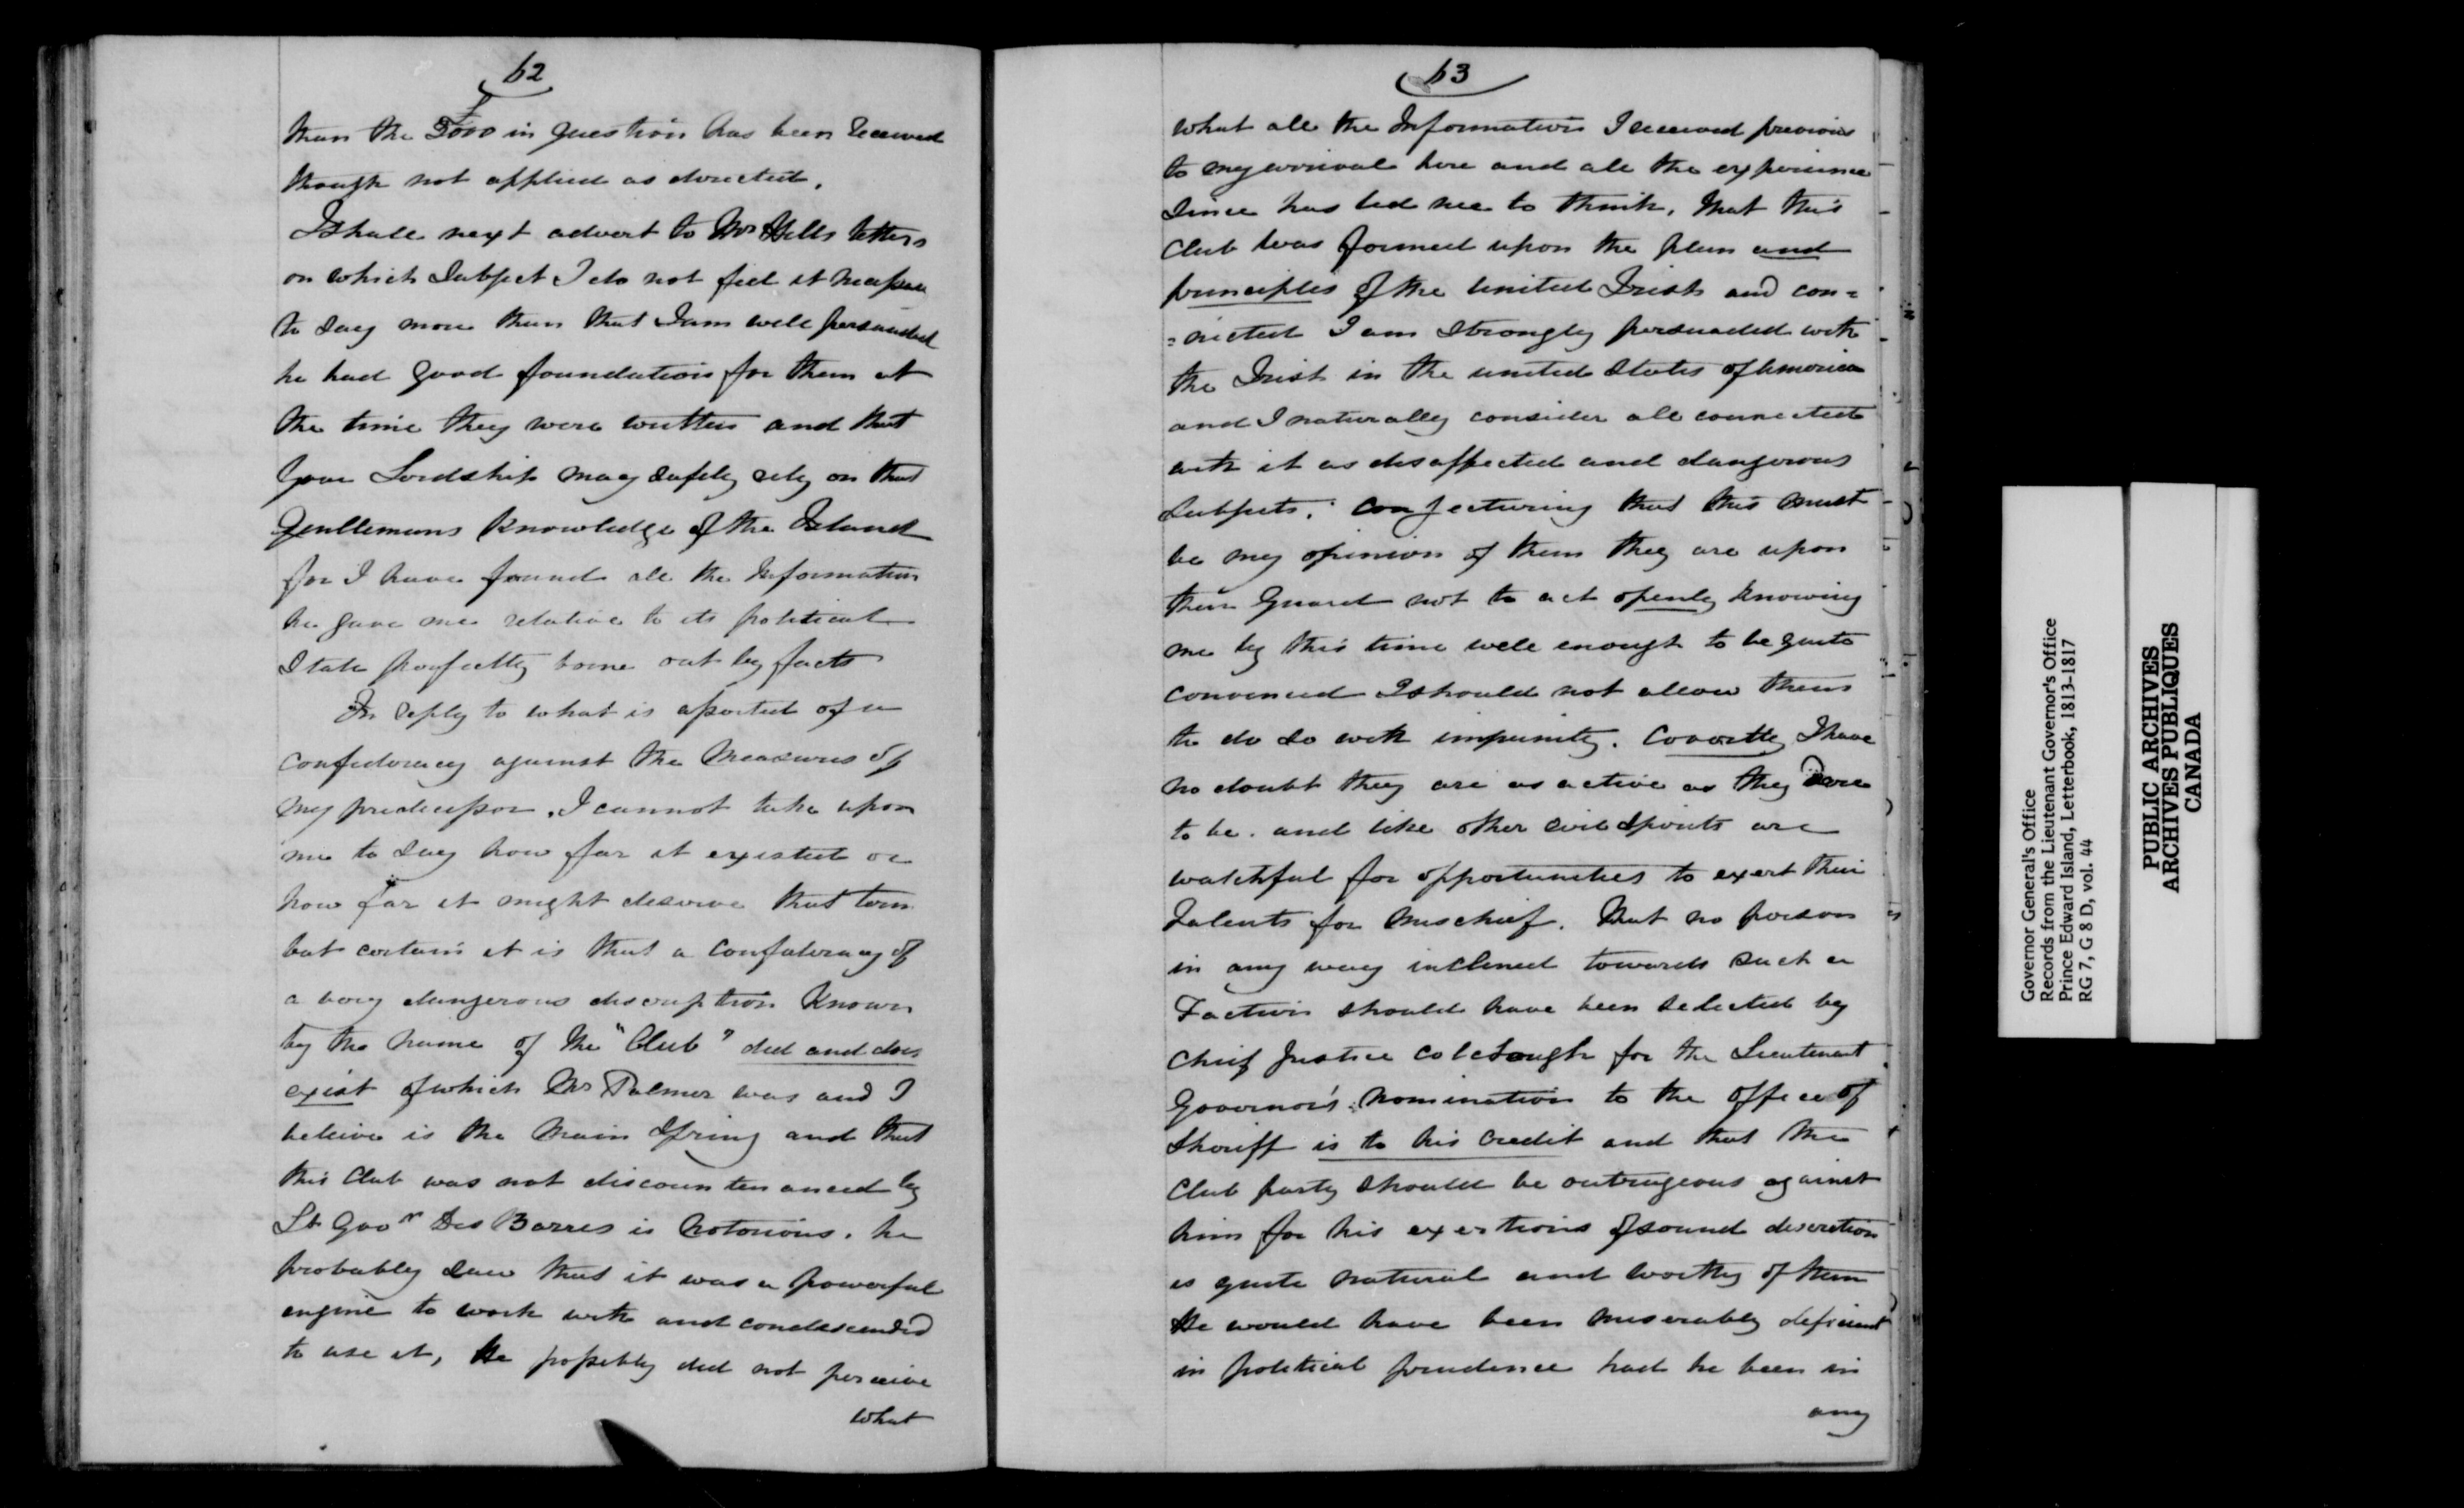 62
than the £3000 in question has been received
though not applied as directed.
I shall next advert to Mr Hills letters
on which Subject I do not feel it necessary
to say more than that I am well persuaded
he had good foundation for them at
the time they were written and that
Your Lordship may safely rely on that
Gentlemans knowledge of the Island
for I have found all the Information
he gave me relative to its political
State perfectly borne out by facts
In reply to what is asserted of a
confederacy against the Measures of
my predecessor, I cannot take upon
me to say how far it existed or
how far it might deserve that term
but certain it is that a confederacy of
a very dangerous description known
by the name of the "Club" did and does
exist of which Mr Palmer was and I
believe is the Main Spring and that
this Club was not discountenanced by
Lt Govr Des Barres is Notorious. he
probably saw that it was a powerful
engine to work with and condescended
to use it, He possibly did not perceive
what
63
what all the Information I received previous
to my arrival here and all the experience
since has led me to think, that this
Club was formed upon the plan and
principles of the United Irish and con=
=nected I am strongly persuaded with
the Irish in the united States of America
and I naturally consider all connected
with it as disaffected and dangerous
subjects. conjecturing that this must
be my opinion of them they are upon
their Guard not to act openly knowing
me by this time well enough to be quite
convinced I should not allow them
to do so with impunity. Covertly I have
no doubt they are as active as they Dare
to be. and like other evil spirits are
watchful for opportunities to exert their
Talents for Mischief. That no person
in any way inclined towards such a
Faction should have been selected by
Chief Justice Colclough for the Lieutenant
Governor's nomination to the office of
Sheriff is to his credit and that the
Club party should be outrageous against
him for his exertions of sound discretion
is quite natural and worthy of them
He would have been miserably deficient
in political prudence had he been in
any
Governor General's Office
Records from the Lieutenant Governor's Office
Prince Edward Island, Letterbook, 1813-1817
RG 7, G 8 D, vol. 44
PUBLIC ARCHIVES
ARCHIVES PUBLIQUES
CANADA